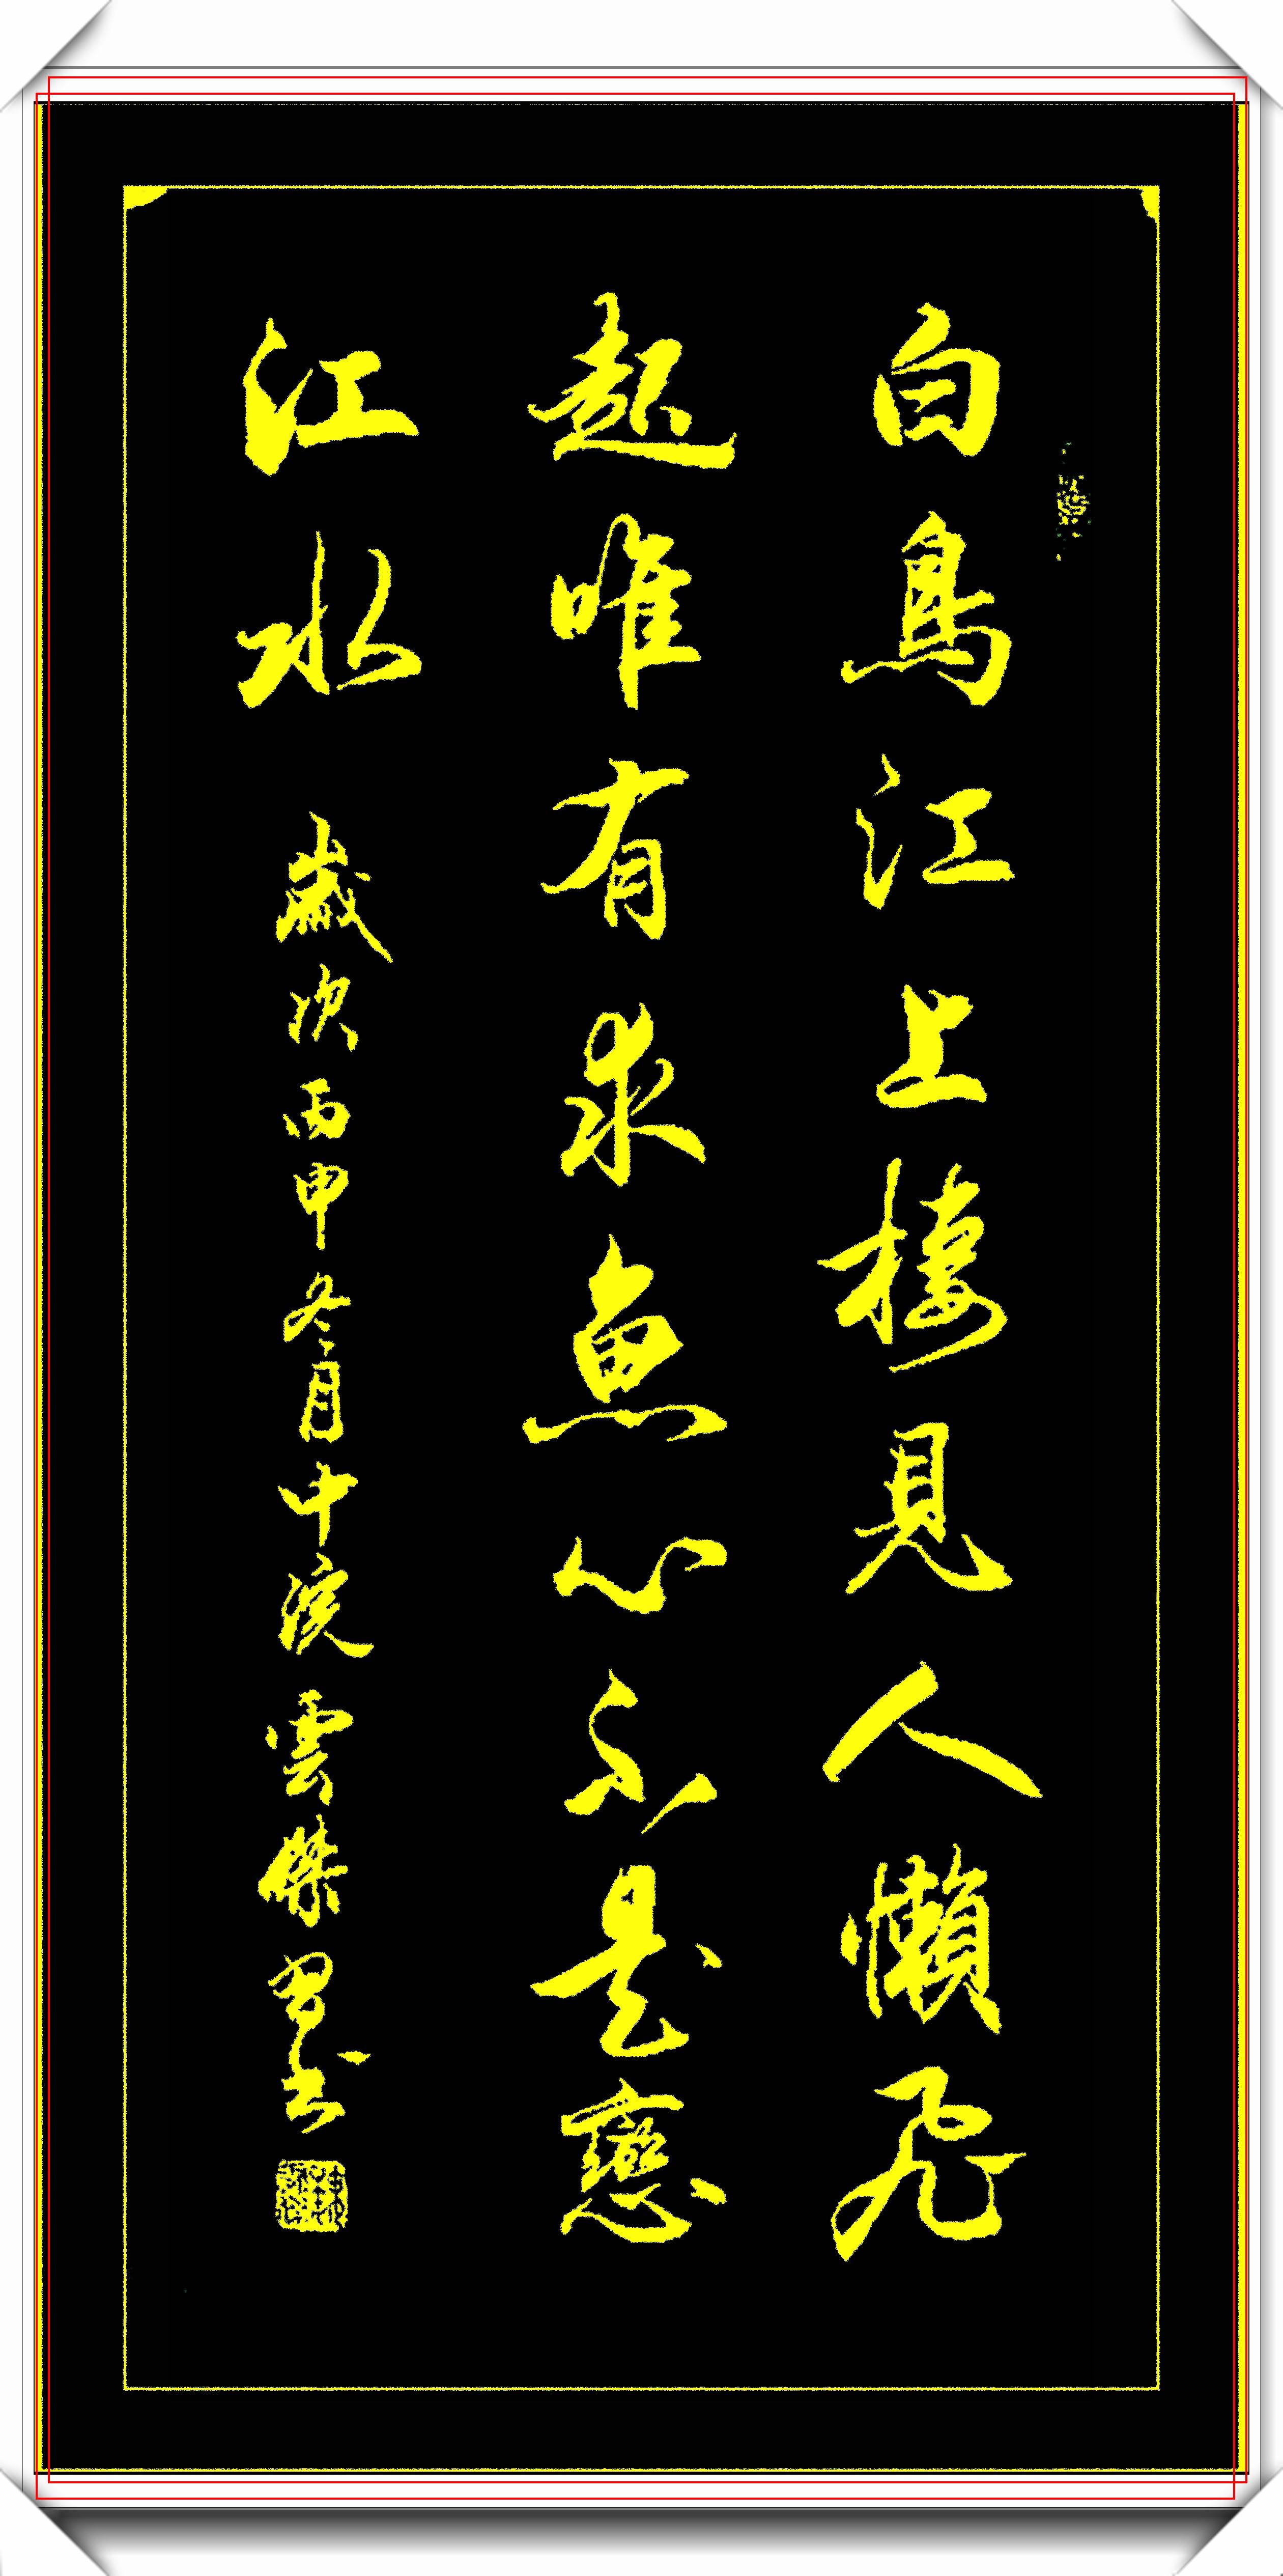 白鳥江上棲見人懶飛
起唯有求魚心不是戀
江水 歲次丙申冬月中浣雲傑習書